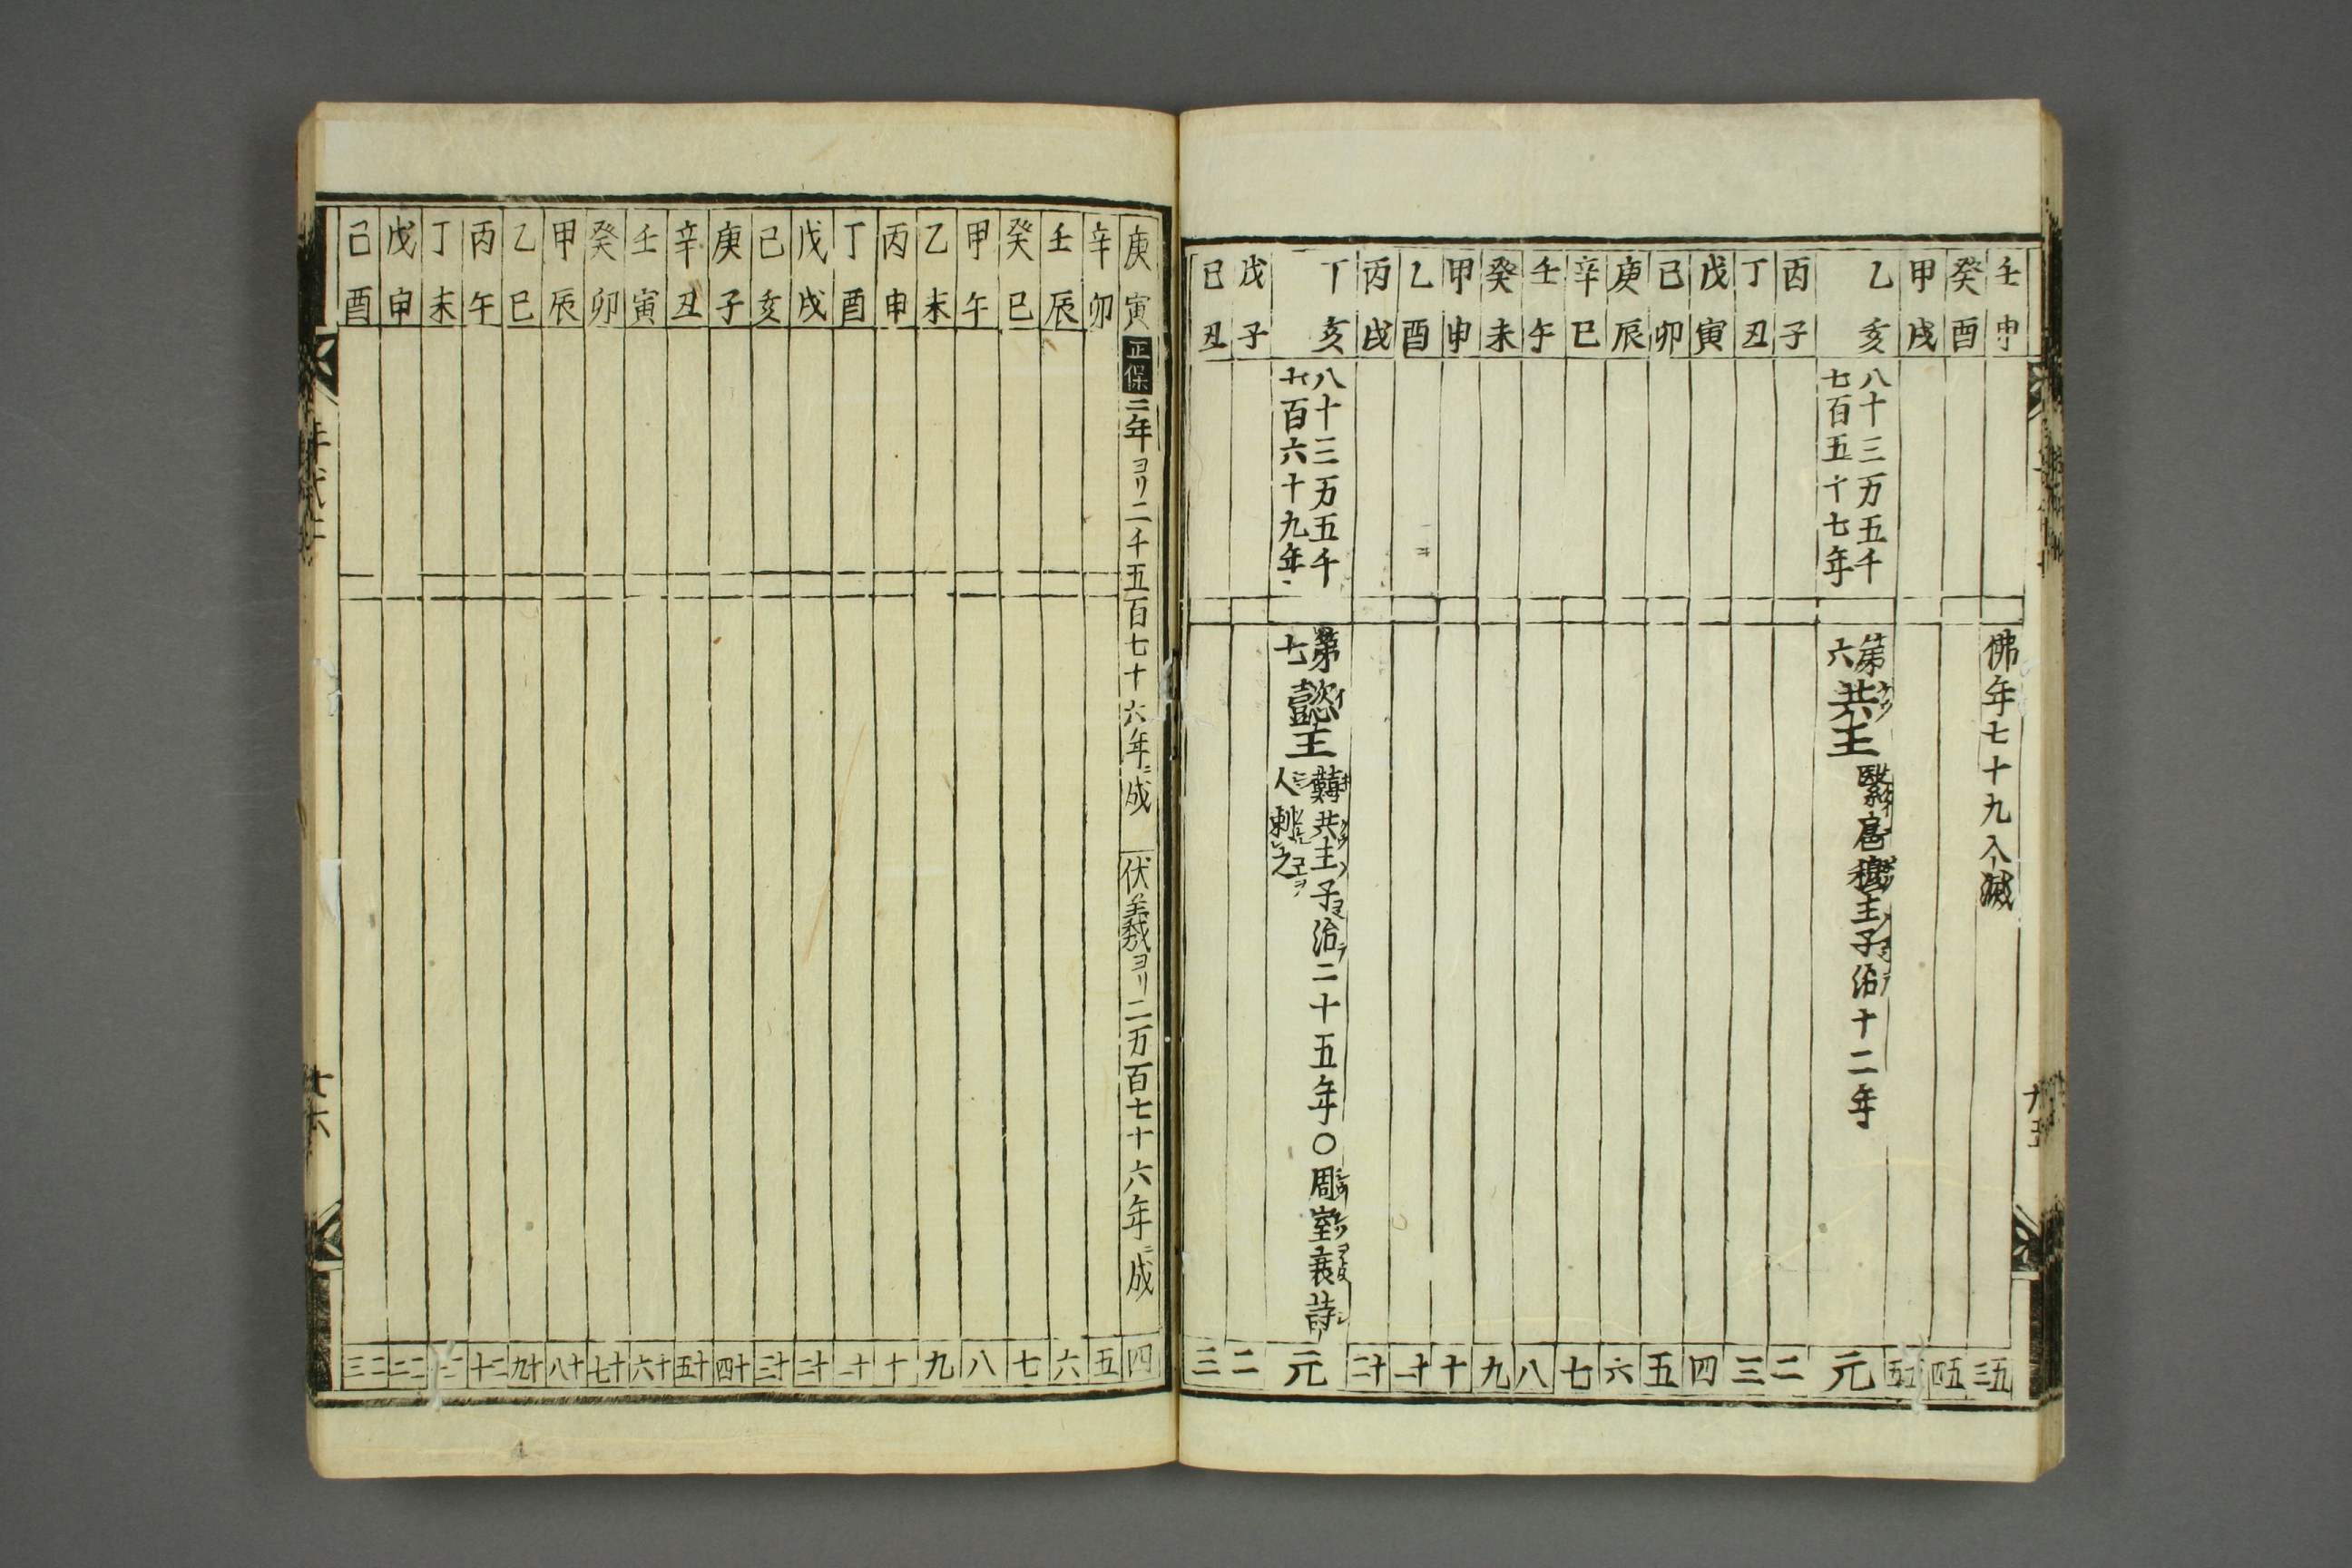 壬申 佛年七十九入滅 五三
癸酉 五四
甲戌 五五
乙亥 八十三万五千七百五十七年 第六 共王 緊扈 穆王ノ子 治十二年 元
丙子 二
丁丑 三
戊寅 四
己卯 五
庚辰 六
辛巳 七
壬午 八
癸未 九
甲申 十
乙酉 十一
丙戌 十二
丁亥 八十三万五千七百六十九年 第七 懿王 囏 共王ノ子 治二十五年〇周室衰詩人刺之 元
戊子 二
己丑 三
十五
庚寅 正保二年ヨリ二千五百七十六年ニ成 伏羲ヨリ二万百七十六年ニ成 四
辛卯 五
壬辰 六
癸巳 七
甲午 八
乙未 九
丙申 十
丁酉 十一
戊戌 十二
己亥 十三
庚子 十四
辛丑 十五
壬寅 十六
癸卯 十七
甲辰 十八
乙巳 十九
丙午 二十
丁未 二一
戊申 二二
己酉 二三
年代
十六